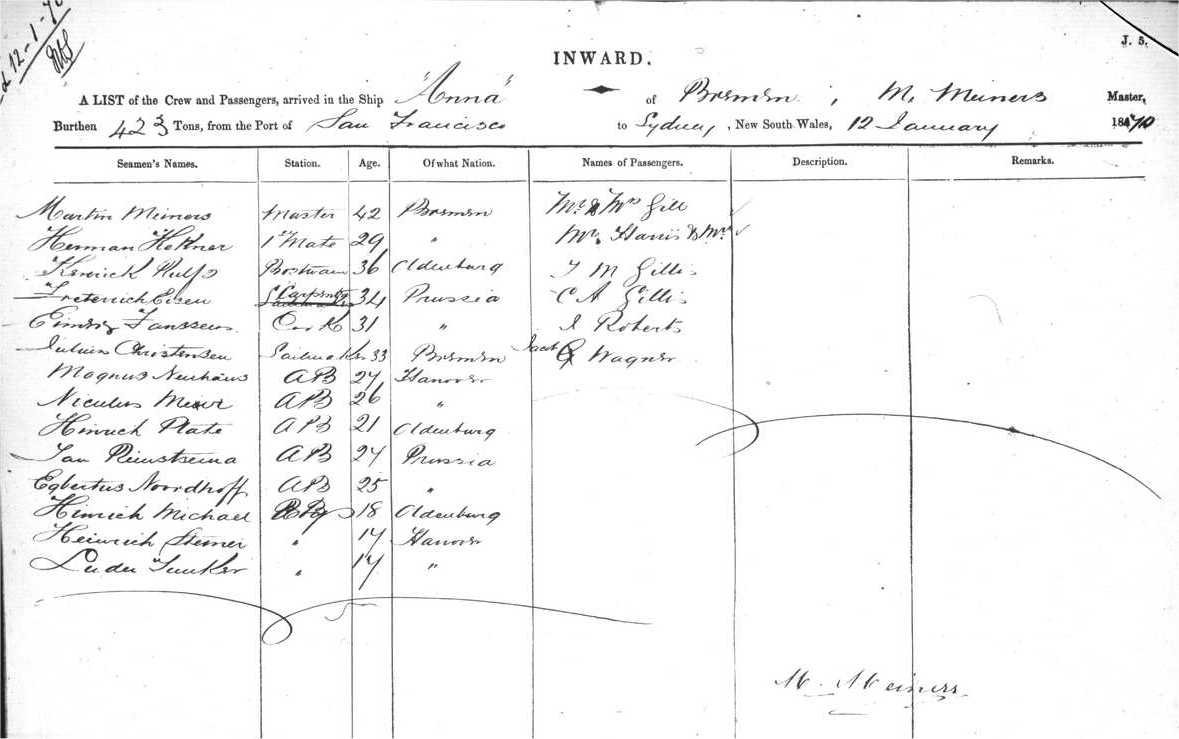 12-1-70
J. 5.
INWARD.
A LIST of the Crew and Passengers, arrived in the Ship "Anna" of Bremen, M. Meiners Master,
Burthen 423 Tons, from the Port of San Francisco to Sydney, New South Wales, 12 January 1870
Seamen's Names. Station. Age. Of what Nation. Names of Passengers. Description. Remarks.
Martin Meiners Master 42 Bremen Mr & Mrs Gill
Herman 1st Mate 29 " Mr Harris & Mrs
Rulfs Bostwain 36 Oldenburg J M Gillis
Freterrich Eisen Carpenter 34 Prussia C A Gillis
Janssen Cook 31 " J Roberts
Julius Christensen Sailmaker 33 Bremen Jacob Wagner
Magnus Neuhaus AB 27 Hanover
Niculus Meier AB 26 "
Hinrich Plate AB 21 Oldenburg
Jan Remtsema AB 24 Prussia
Egbertus Noordhoff AB 25 "
Hinrich Michael Boy 18 Oldenburg
Heinrich Steiner " 17 Hanover
Luder Junker " 17 "
M. Meiners.